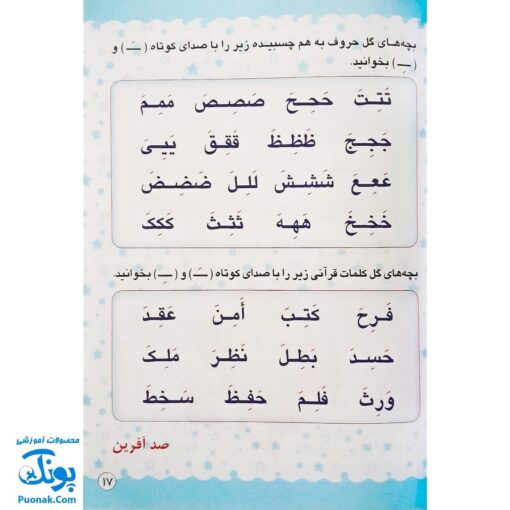 بچه‌های گل حروف به هم چسبیده زیر را با صدای کوتاه (ـَـ) و
(ـِـ) بخوانید.
تَتِـتَ حَحِـحَ صَصِـصَ مَمِـمَ
جَجِـجَ ظَظِـظَ قَقِـقَ یَیِـیَ
عَعِـعَ شَشِـشَ لَلِـلَ ضَضِـضَ
خَخِـخَ هَهِـهَ ثَثِـثَ کَکِـکَ
بچه‌های گل کلمات قرآنی زیر را با صدای کوتاه (ـَـ) و (ـِـ) بخوانید.
فَـرِحَ کَتِـبَ أَمِـنَ عَقِـدَ
حَسِـدَ بَطِـلَ نَظِـرَ مَلِـکَ
وَرِثَ فَلِـمَ حَفِـظَ سَـخِـطَ
صد آفرین
۱۷
محصولات آموزشی
پونک
Puonak.Com